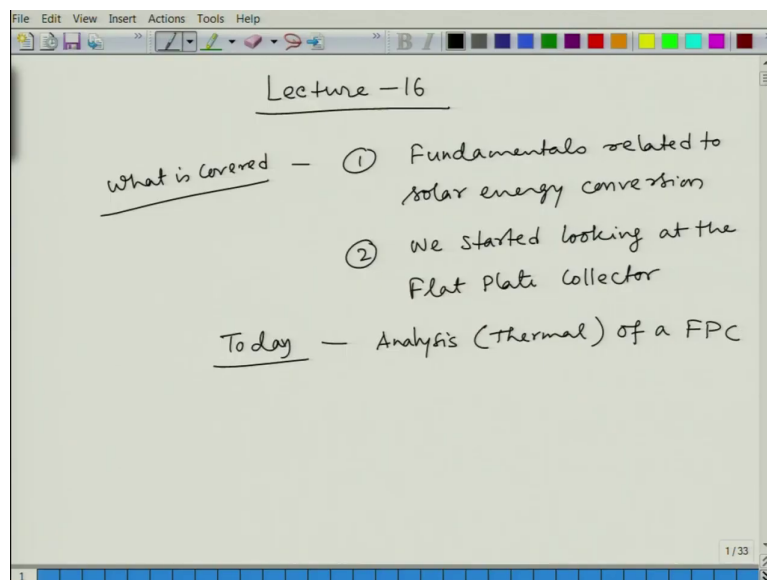 File Edit View Insert Actions Tools Help
B I
Lecture - 16
What is covered - ① Fundamentals related to
solar energy conversion
② We started looking at the
Flat Plate Collector
Today - Analysis (Thermal) of a FPC
1/33
1